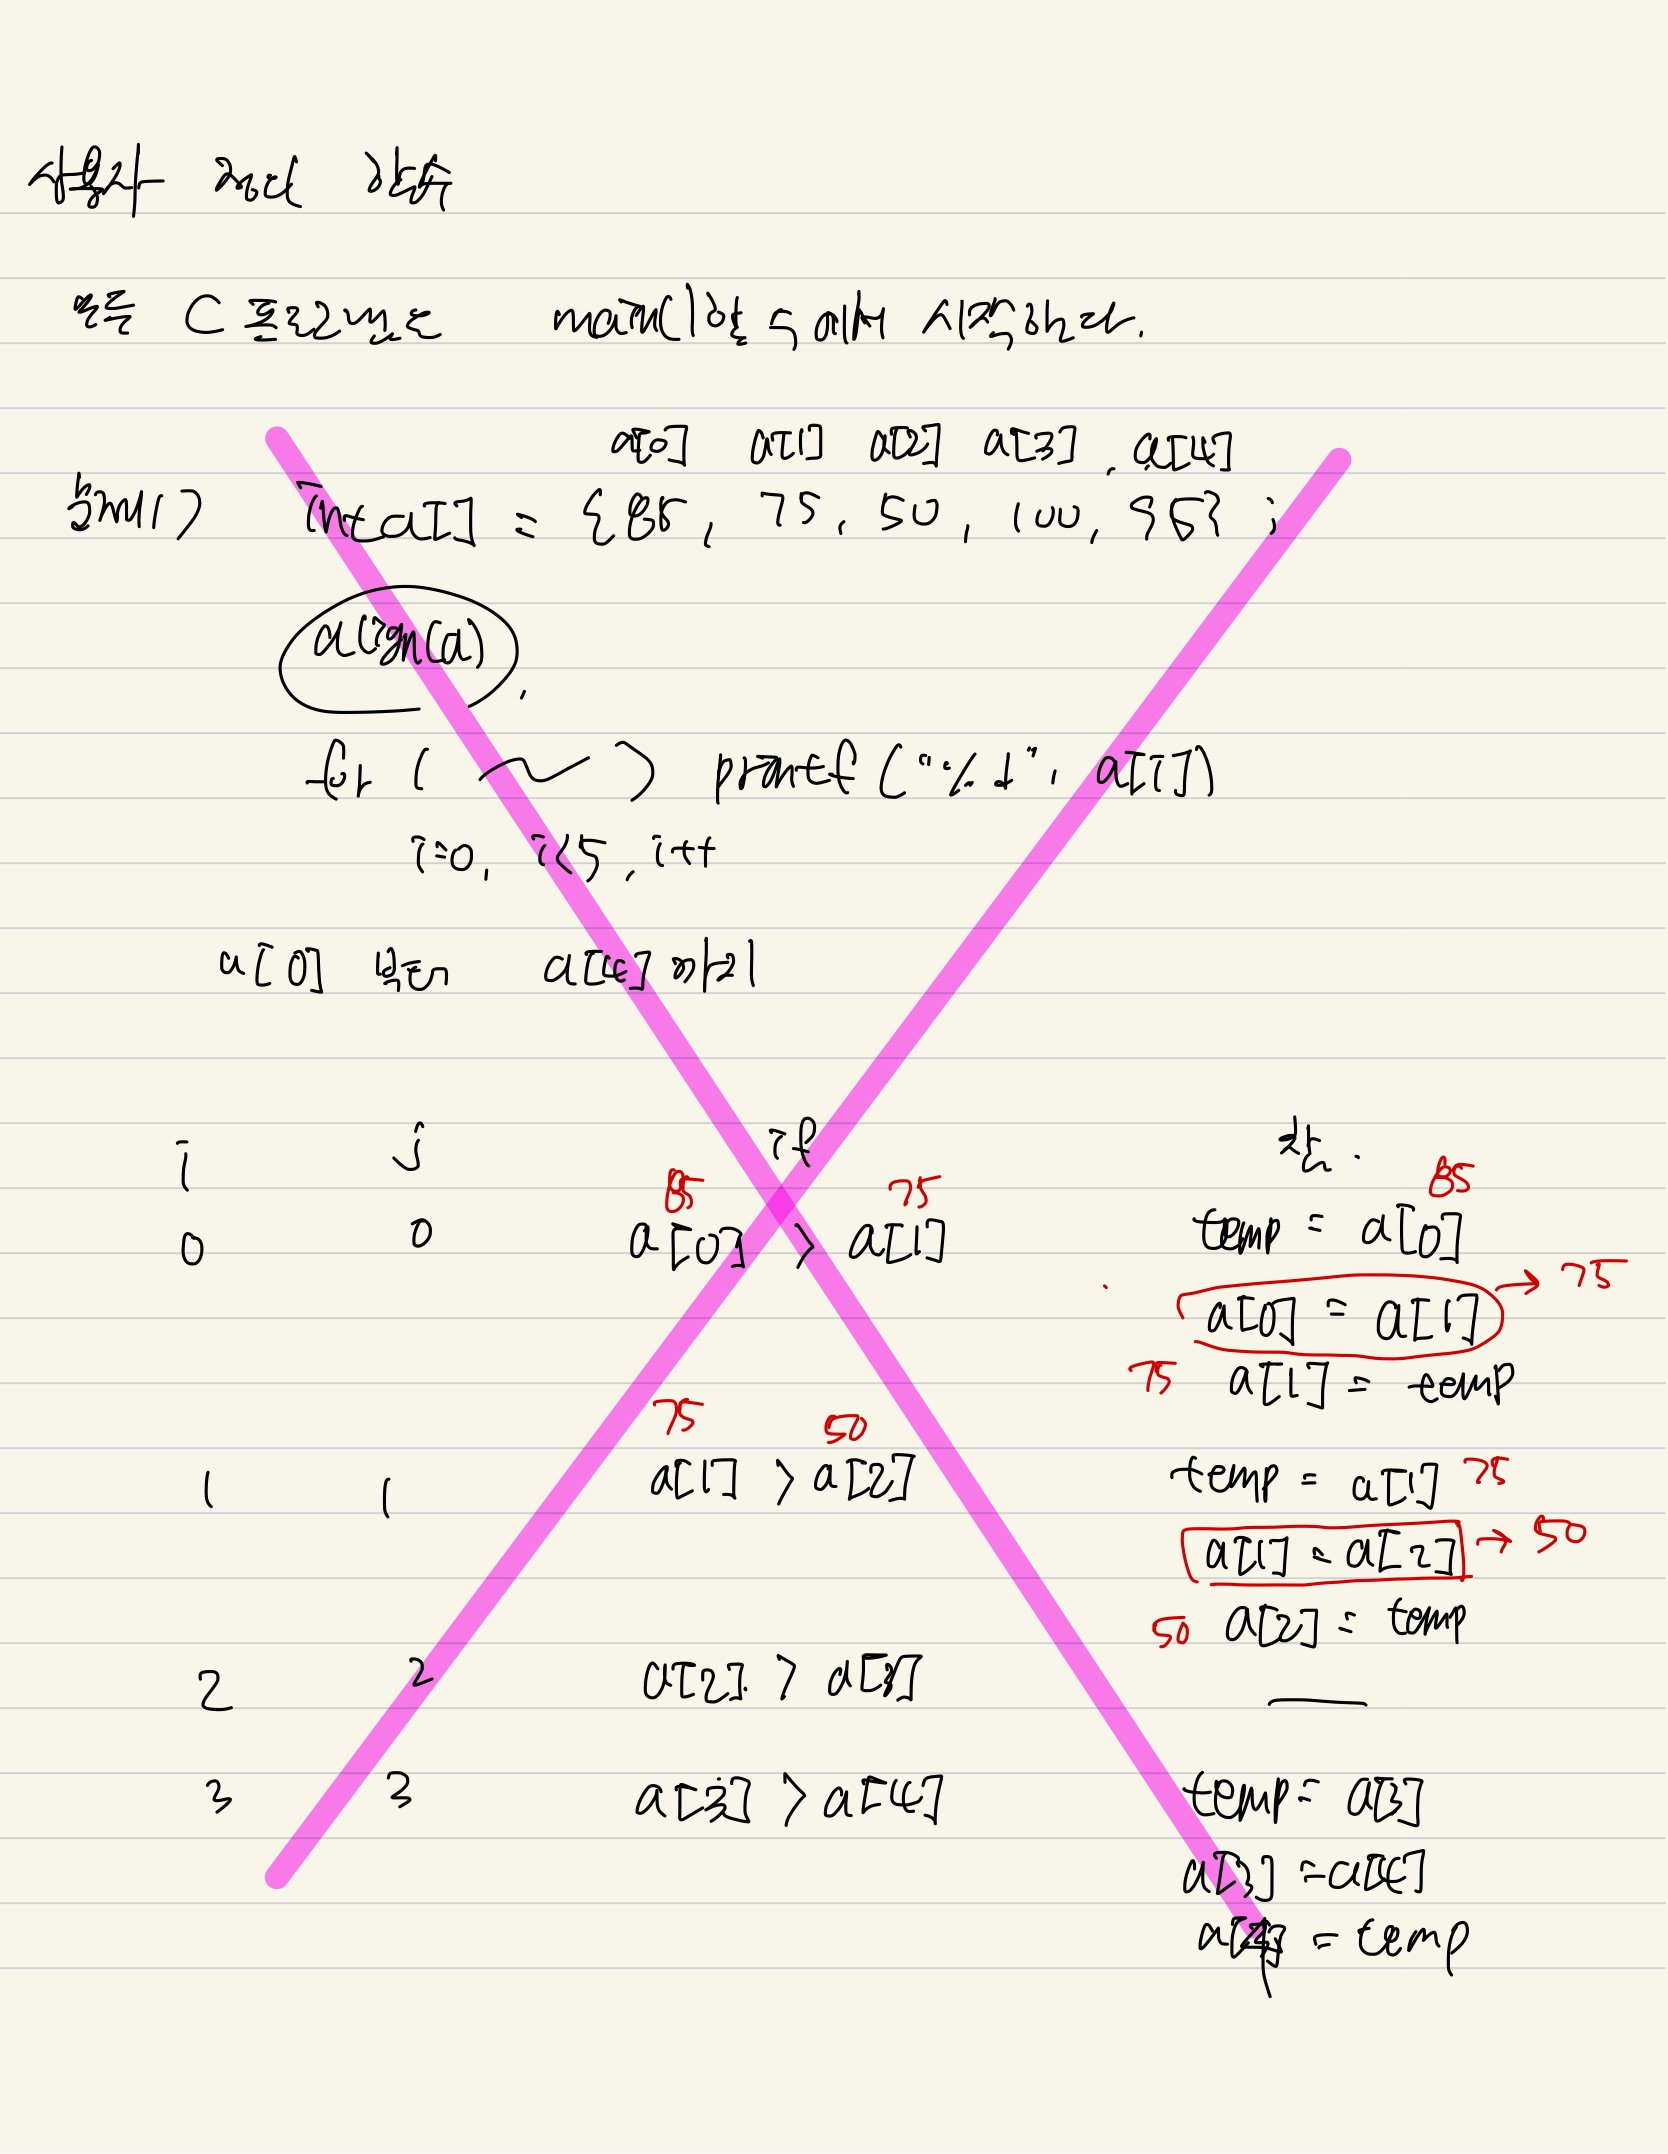 사용자 정의 함수
모든 C 프로그램은 main()함수에서 시작한다.
a[0] a[1] a[2] a[3] a[4]
문제1) int a[] = {85, 75, 50, 100, 95};
align(a)
for ( ~ ) printf("%d", a[i])
i=0, i<5, i++
a[0] 부터 a[4] 까지
i j if 참.
85 75 85
0 0 a[0] > a[1] temp = a[0]
a[0] = a[1] → 75
75 a[1] = temp
75 50
1 1 a[1] > a[2] temp = a[1] 75
a[1] = a[2] → 50
50 a[2] = temp
2 2 a[2] > a[3] —
3 3 a[3] > a[4] temp = a[3]
a[3] = a[4]
a[4] = temp